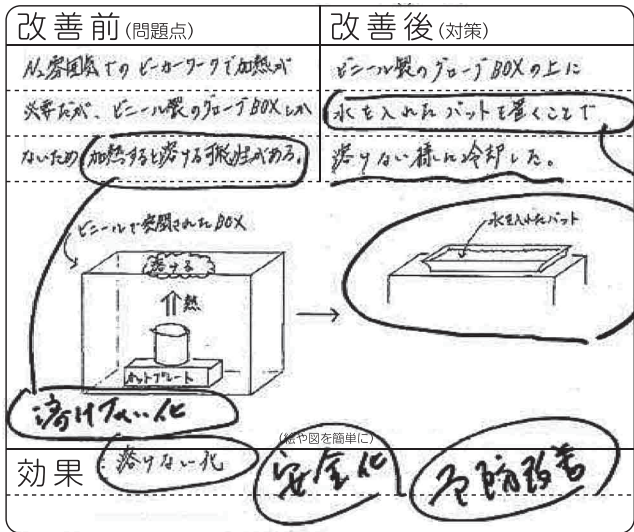 改善前(問題点)
N₂雰囲気でのビーカーワークで加熱が
必要だが、ビニール製のグローブBOXしか
ないため加熱すると溶ける可能性がある。
改善後(対策)
ビニール製のグローブBOXの上に
水を入れたバットを置くことで
溶けない様に冷却した。
ビニールで密閉されたBOX
溶ける
熱
ホットプレート
水を入れたバット
溶けない化
(絵や図を簡単に)
効果
溶けない化
安全化
予防改善